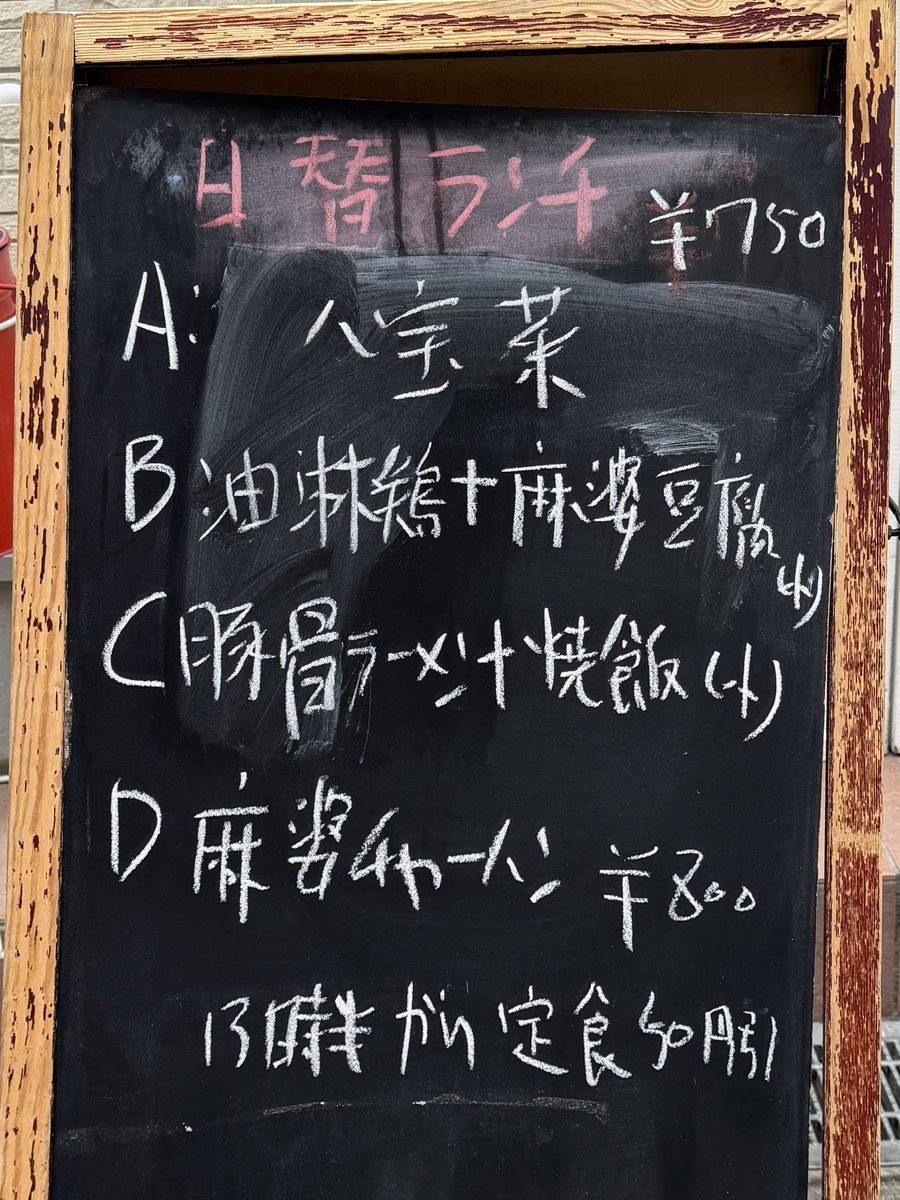 日替ランチ ¥750
A: 八宝菜
B 油淋鶏+麻婆豆腐(小)
C 豚骨ラーメン+焼飯(小)
D 麻婆チャーハン ¥800
13時半から定食50円引